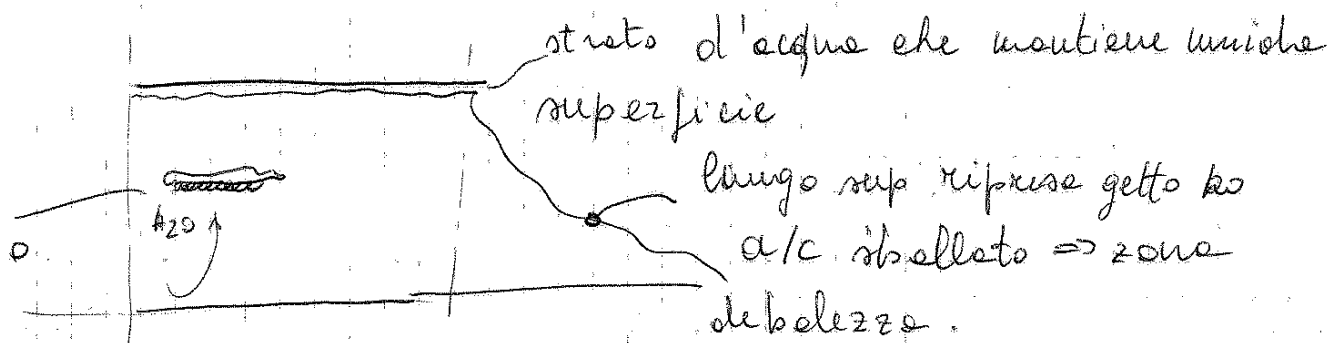 strato d'acqua che mantiene umida
superficie
lungo sup ripresa getto ho
a/c sballato => zona
debolezza.
H2O